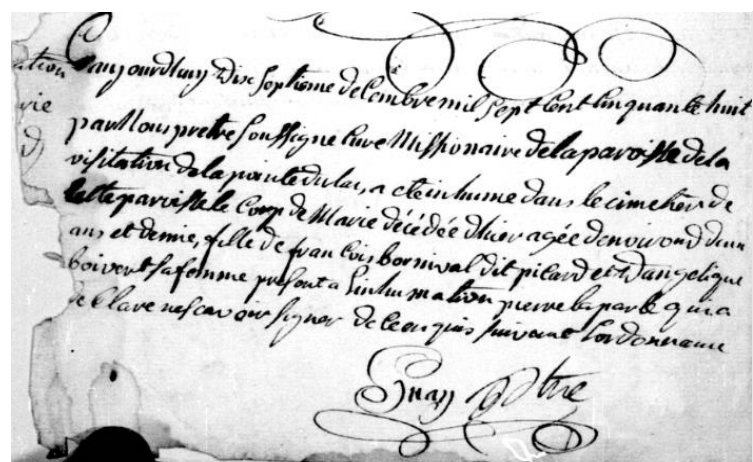 ation
vie
d
Caujourdhuy dix septieme decembre mil sept cent cinquante huit
par Nous pretre soussigne cure Missionaire de la paroisse de la
visitation de la pointe du lac, a ete inhume dans le cimetiere de
cette paroisse le corp de Marie décédée d'hier agée denviron d'un
ans et demie, fille de francois bornival dit picard et d'angelique
boivert sa femme present a linhumation pierre laparle qui a
declare ne scavoir signer de ce enquis suivant lordonnance
ptre